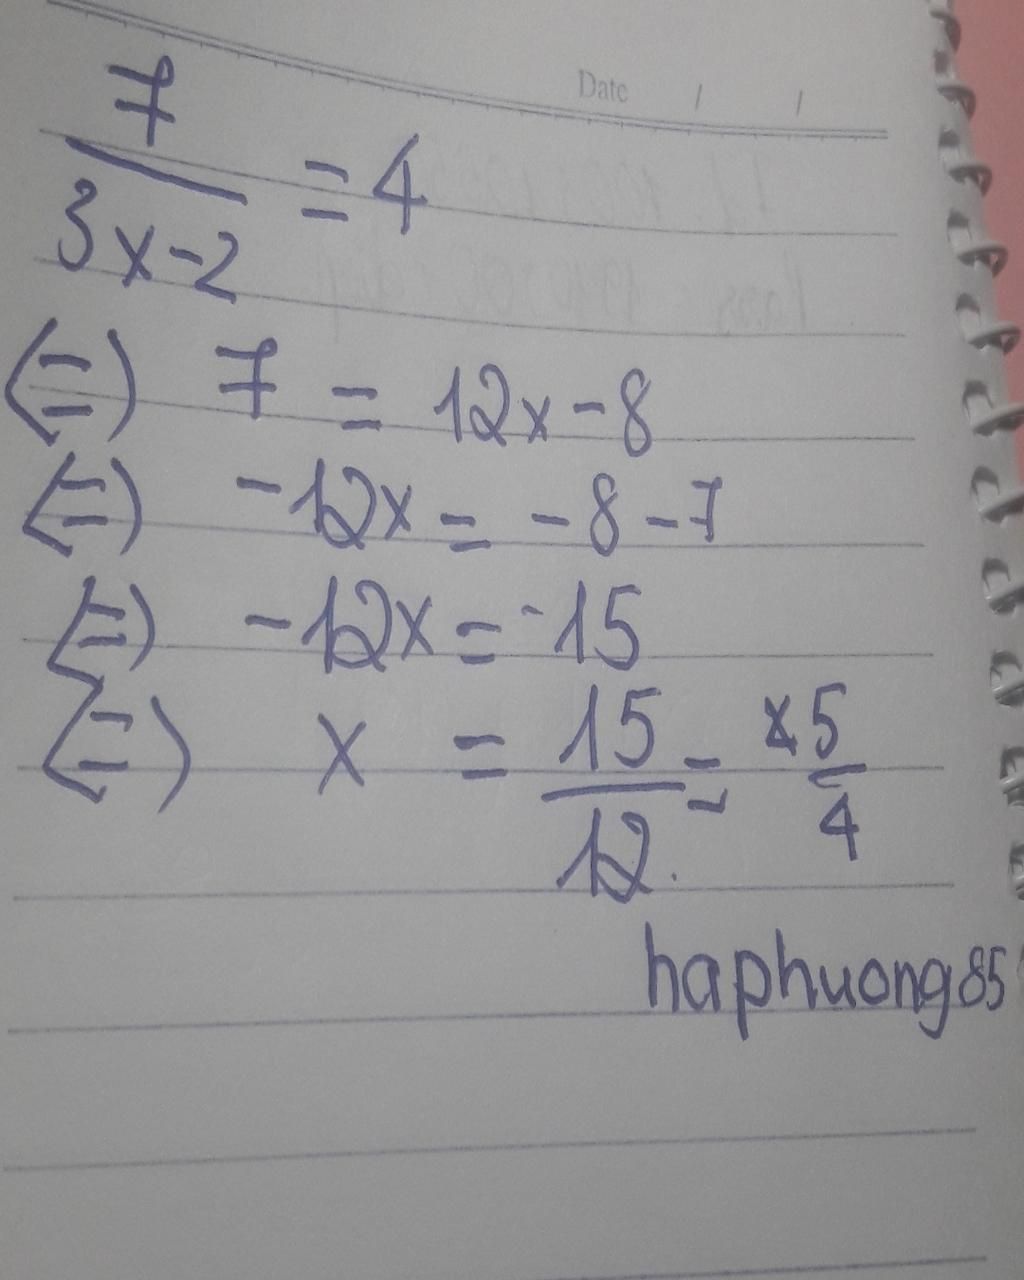 Date / /
7/(3x-2) = 4
(=) 7 = 12x - 8
(=) -12x = -8 - 7
(=) -12x = -15
(=) x = 15/12 = 5/4
haphuong85